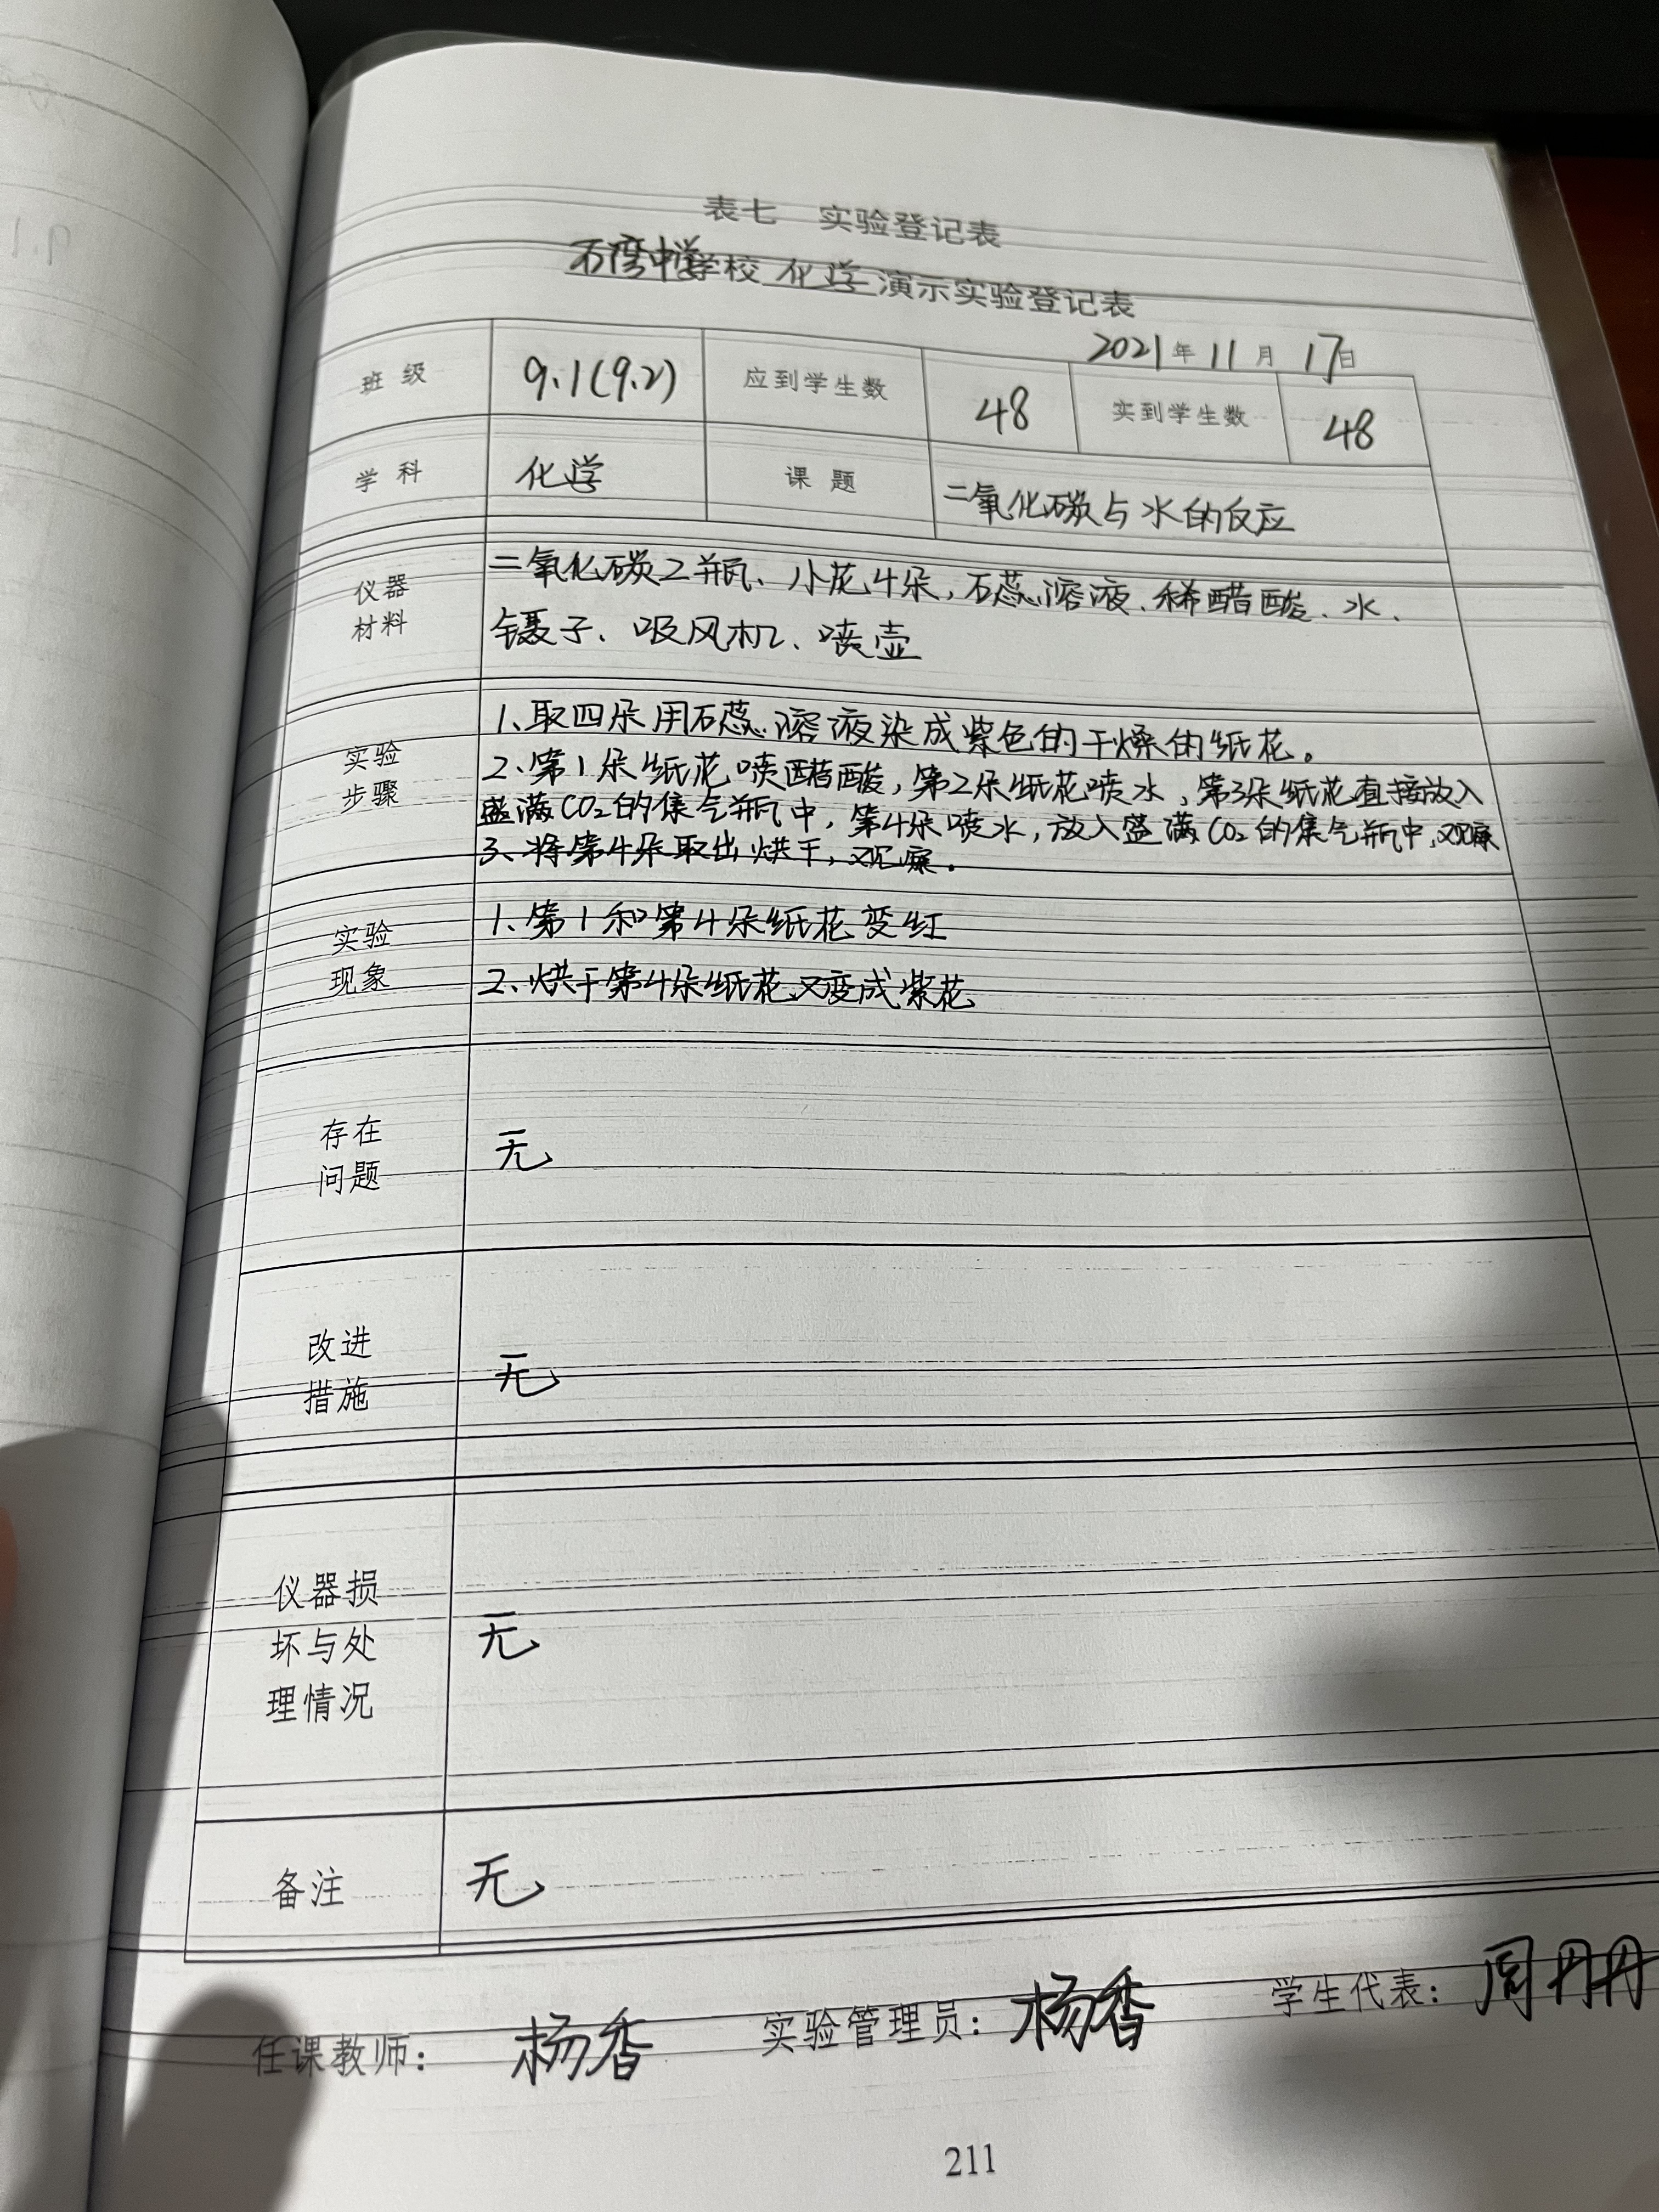 表七 实验登记表
石湾中学学校 化学 演示实验登记表
2021年11月17日
班级 9.1(9.2) 应到学生数 48 实到学生数 48
学科 化学 课题 二氧化碳与水的反应
仪器材料
二氧化碳2瓶、小花4朵,石蕊溶液、稀醋酸、水、
镊子、吸风机、喷壶
实验步骤
1、取四朵用石蕊溶液染成紫色的干燥的纸花。
2、第1朵纸花喷醋酸,第2朵纸花喷水,第3朵纸花直接放入
盛满CO2的集气瓶中,第4朵喷水,放入盛满CO2的集气瓶中,观察
3、将第4朵取出烘干,观察。
实验现象
1、第1和第4朵纸花变红
2、烘干第4朵纸花又变成紫花
存在问题
无
改进措施
无
仪器损坏与处理情况
无
备注 无
任课教师: 杨香 实验管理员: 杨香 学生代表: 周丹丹
211